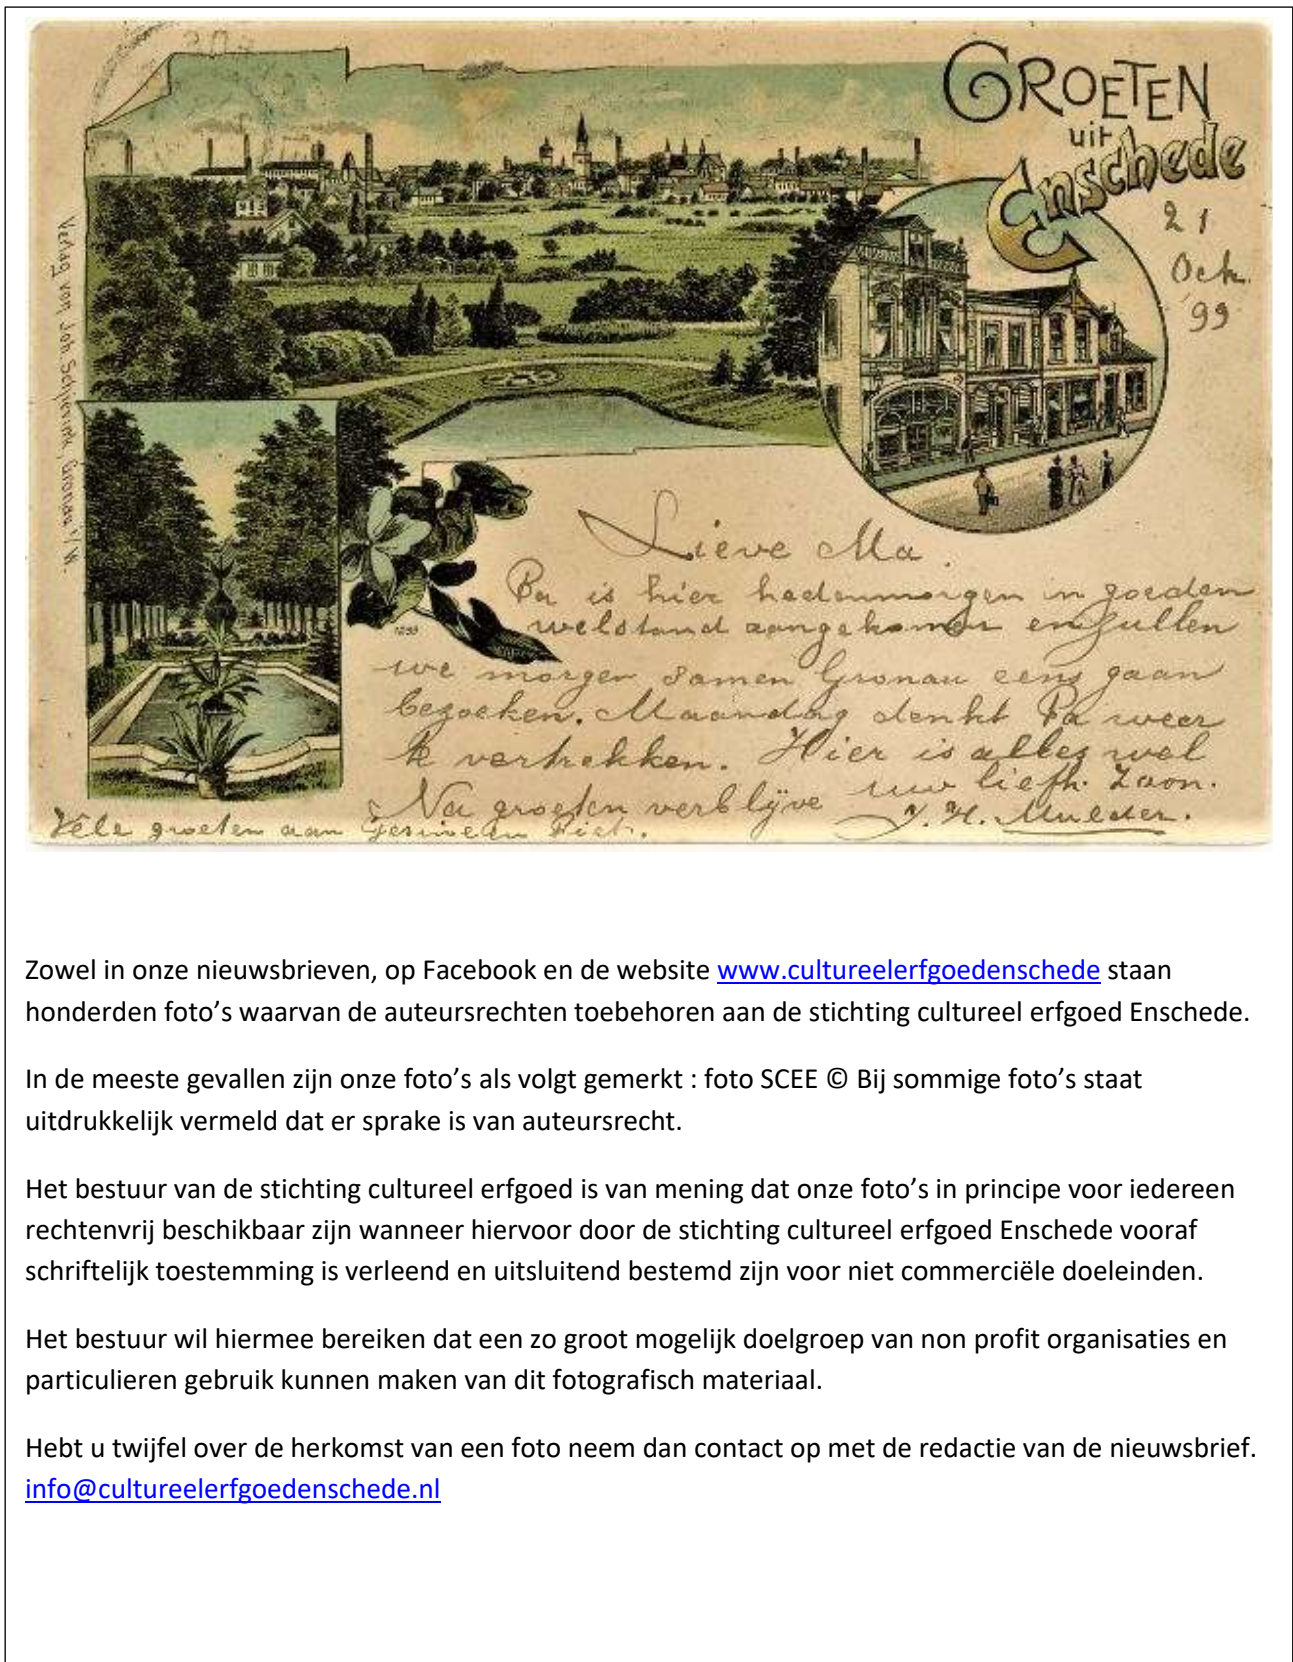 GROETEN
uit
Enschede
21
Oct.
'99
Verlag von Joh. Schievink, Gronau i/W.
Lieve Ma
Pa is hier hedenmorgen in goeden
welstand aangekomen en zullen
we morgen samen Gronau eens gaan
bezoeken. Maandag denkt Pa weer
te vertrekken. Hier is alles wel
Na groeten verblijve uw liefh. Zoon.
J. H. Mulder.
Vele groeten aan en Piet.
1299
Zowel in onze nieuwsbrieven, op Facebook en de website www.cultureelerfgoedenschede staan
honderden foto’s waarvan de auteursrechten toebehoren aan de stichting cultureel erfgoed Enschede.
In de meeste gevallen zijn onze foto’s als volgt gemerkt : foto SCEE © Bij sommige foto’s staat
uitdrukkelijk vermeld dat er sprake is van auteursrecht.
Het bestuur van de stichting cultureel erfgoed is van mening dat onze foto’s in principe voor iedereen
rechtenvrij beschikbaar zijn wanneer hiervoor door de stichting cultureel erfgoed Enschede vooraf
schriftelijk toestemming is verleend en uitsluitend bestemd zijn voor niet commerciële doeleinden.
Het bestuur wil hiermee bereiken dat een zo groot mogelijk doelgroep van non profit organisaties en
particulieren gebruik kunnen maken van dit fotografisch materiaal.
Hebt u twijfel over de herkomst van een foto neem dan contact op met de redactie van de nieuwsbrief.
info@cultureelerfgoedenschede.nl